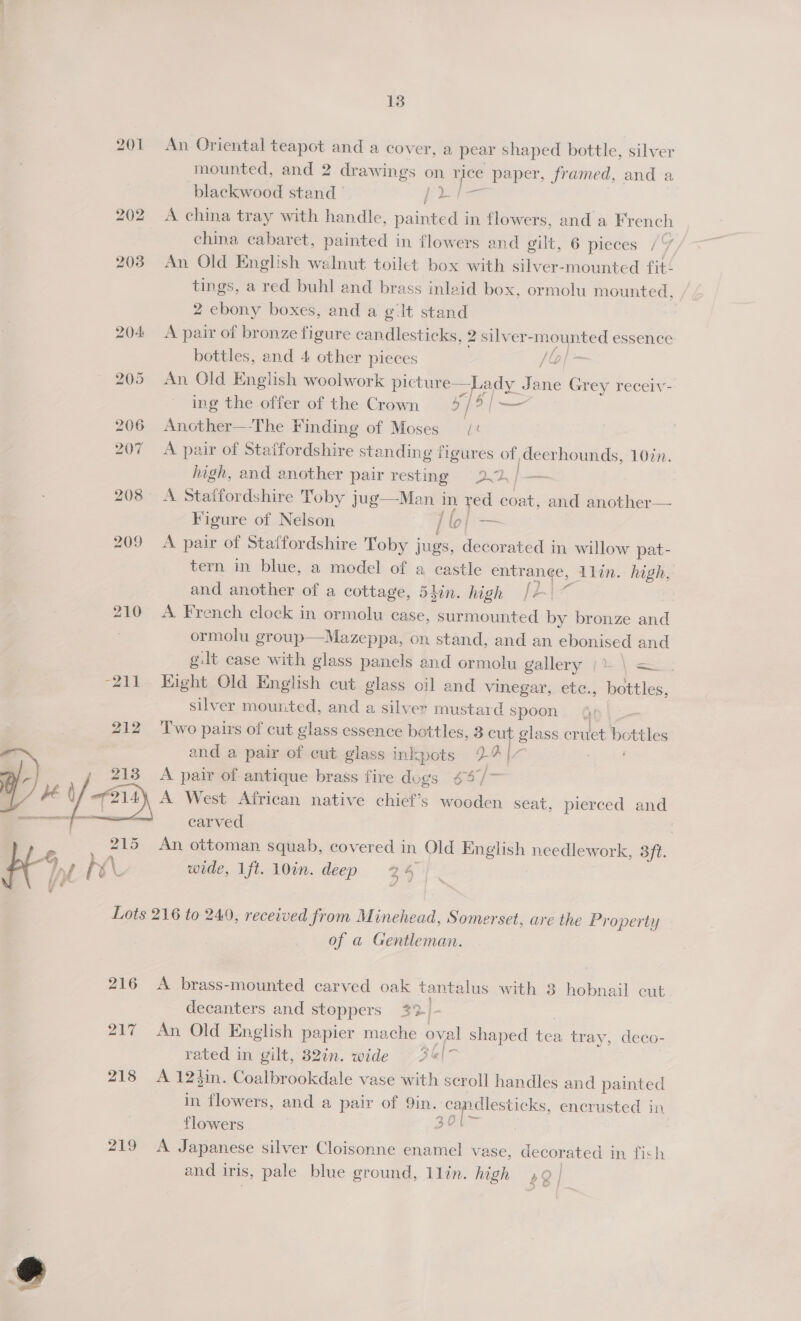 13
201 An Oriental teapot and a cover, a pear shaped bottle, silver
mounted, and 2 drawings on rice paper, framed, and a
blackwood stand 12/-
202 A china tray with handle, painted in flowers, and a French
china cabaret, painted in flowers and gilt, 6 pieces
203 An Old English walnut toilet box with silver-mounted fit-
tings, a red buhl and brass inlaid box, ormolu mounted,
2 ebony boxes, and a gilt stand
204 A pair of bronze figure candlesticks, 2 silver-mounted essence
bottles, and 4 other pieces 16/-
205 An Old English woolwork picture—Lady Jane Grey receiv-
ing the offer of the Crown
206 Another—The Finding of Moses
207 A pair of Staffordshire standing figures of deerhounds, 10in.
high, and another pair resting 22/-
208 A Staffordshire Toby jug—Man in red coat, and another—
Figure of Nelson 16/-
209 A pair of Staffordshire Toby jugs, decorated in willow pat-
tern in blue, a model of a castle entrance, 11in. high,
and another of a cottage, 5½in. high 12/-
210 A French clock in ormolu case, surmounted by bronze and
ormolu group—Mazeppa, on stand, and an ebonised and
gilt case with glass panels and ormolu gallery
211 Eight Old English cut glass oil and vinegar, etc., bottles,
silver mounted, and a silver mustard spoon
212 Two pairs of cut glass essence bottles, 3 cut glass cruet bottles
and a pair of cut glass inkpots
213 A pair of antique brass fire dogs
214 A West African native chief's wooden seat, pierced and
carved
215 An ottoman squab, covered in Old English needlework, 3ft.
wide, 1ft. 10in. deep
Lots 216 to 240, received from Minehead, Somerset, are the Property
of a Gentleman.
216 A brass-mounted carved oak tantalus with 3 hobnail cut
decanters and stoppers 32/-
217 An Old English papier mache oval shaped tea tray, deco-
rated in gilt, 32in. wide
218 A 12½in. Coalbrookdale vase with scroll handles and painted
in flowers, and a pair of 9in. candlesticks, encrusted in
flowers 30/-
219 A Japanese silver Cloisonne enamel vase, decorated in fish
and iris, pale blue ground, 11in. high